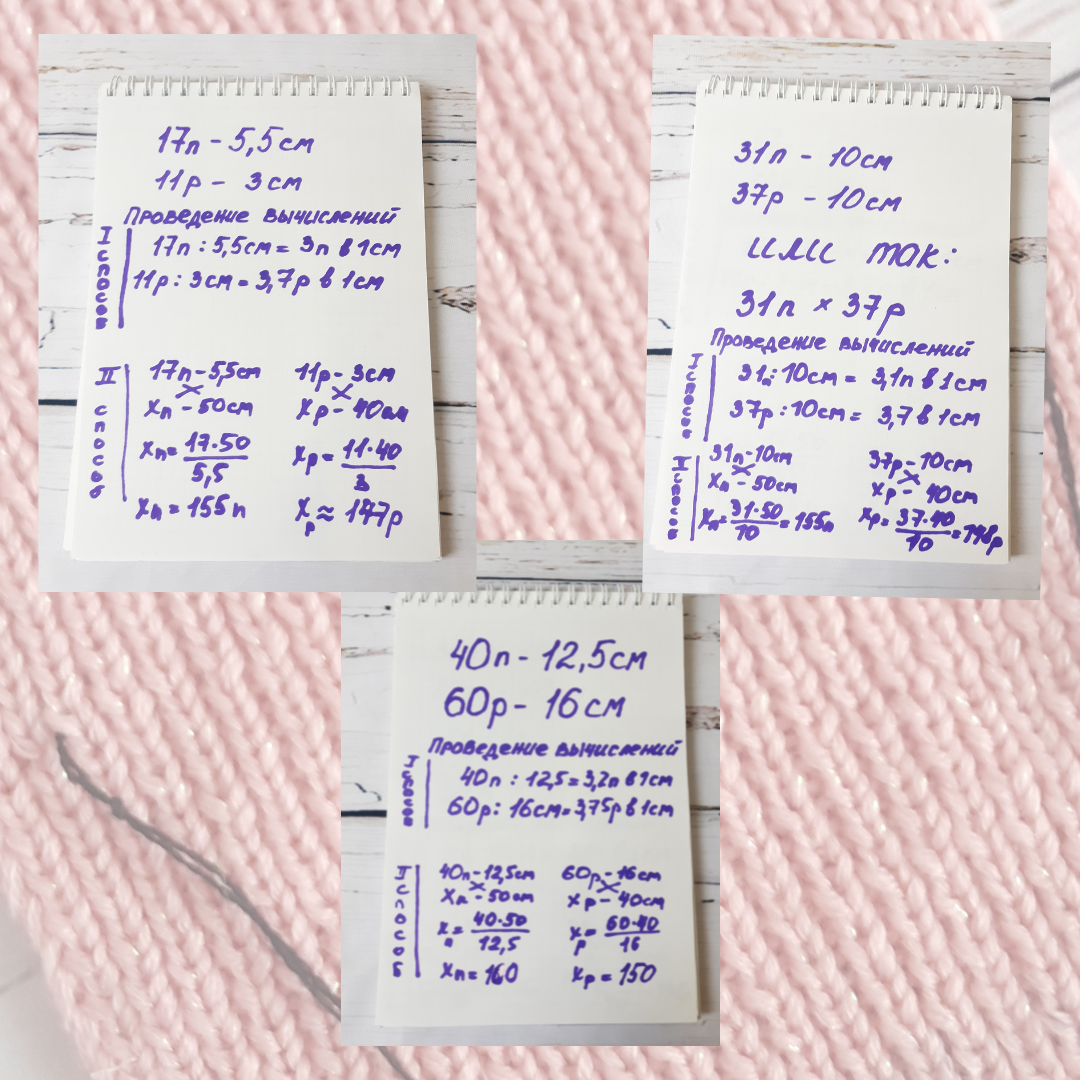 17п - 5,5см
11р - 3см
Проведение вычислений
I способ
17п : 5,5см = 3п в 1см
11р : 3см = 3,7р в 1см
II способ
17п - 5,5см
Xп - 50см
Xп = 17·50 / 5,5
Xп = 155п
11р - 3см
Xр - 40см
Xр = 11·40 / 3
Xр ≈ 147р
31п - 10см
37р - 10см
или так:
31п × 37р
Проведение вычислений
I способ
31п : 10см = 3,1п в 1см
37р : 10см = 3,7 в 1см
II способ
31п - 10см
Xп - 50см
Xп = 31·50 / 10 = 155п
37р - 10см
Xр - 40см
Xр = 37·40 / 10 = 148р
40п - 12,5см
60р - 16см
Проведение вычислений
I способ
40п : 12,5 = 3,2п в 1см
60р : 16см = 3,75р в 1см
II способ
40п - 12,5см
Xп - 50см
Xп = 40·50 / 12,5
Xп = 160
60р - 16см
Xр - 40см
Xр = 60·40 / 16
Xр = 150